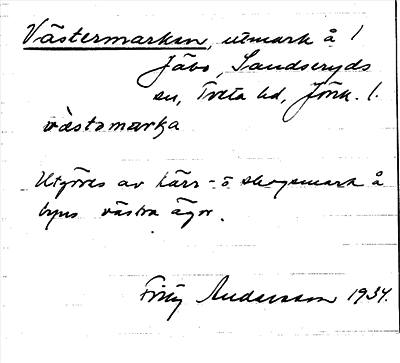 Västermarken, utmark å 1
Jära, Sandseryds
sn, Tveta hd, Jönk. l.
västomarka
Utgöres av kärr- o skogsmark å
byns västra ägor.
Fritz Andersson 1934.